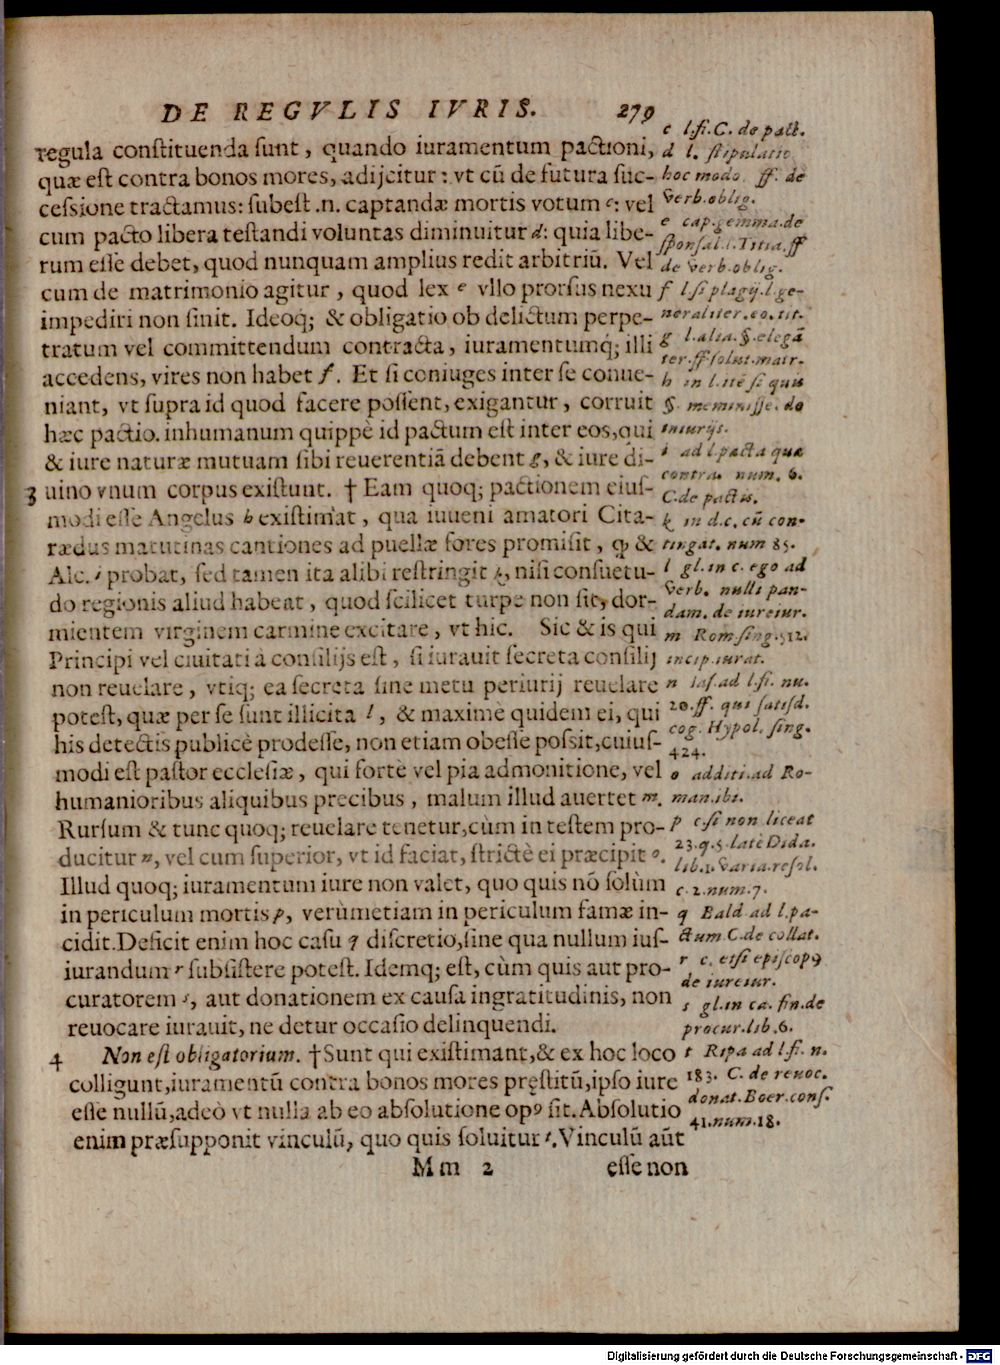 DE REGVLIS IVRIS. 279
regula conſtituenda ſunt, quando iuramentum pactioni,
quæ eſt contra bonos mores, adijcitur: vt cū de futura ſuc-
ceſsione tractamus: ſubeſt .n. captandæ mortis votum c: vel
cum pacto libera teſtandi voluntas diminuitur d: quia libe-
rum eſſe debet, quod nunquam amplius redit arbitriū. Vel
cum de matrimonio agitur, quod lex e vllo prorſus nexu
impediri non ſinit. Ideoq; & obligatio ob delictum perpe-
tratum vel committendum contracta, iuramentumq; illi
accedens, vires non habet f. Et ſi coniuges inter ſe conue-
niant, vt ſupra id quod facere poſſent, exigantur, corruit
hæc pactio. inhumanum quippè id pactum eſt inter eos, qui
& iure naturæ mutuam ſibi reuerentiā debent g, & iure di-
3 uino vnum corpus exiſtunt. † Eam quoq; pactionem eiuſ-
modi eſſe Angelus h exiſtimat, qua iuueni amatori Cita-
rædus matutinas cantiones ad puellæ fores promiſit, ꝙ &
Alc. i probat, ſed tamen ita alibi reſtringit k, niſi conſuetu-
do regionis aliud habeat, quod ſcilicet turpe non ſit, dor-
mientem virginem carmine excitare, vt hic. Sic & is qui
Principi vel ciuitati à conſilijs eſt, ſi iurauit ſecreta conſilij
non reuelare, vtiq; ea ſecreta ſine metu periurij reuelare
poteſt, quæ per ſe ſunt illicita l, & maximè quidem ei, qui
his detectis publicè prodeſſe, non etiam obeſſe poſsit, cuiuſ-
modi eſt paſtor eccleſiæ, qui fortè vel pia admonitione, vel
humanioribus aliquibus precibus, malum illud auertet m.
Rurſum & tunc quoq; reuelare tenetur, cùm in teſtem pro-
ducitur n, vel cum ſuperior, vt id faciat, ſtrictè ei præcipit o.
Illud quoq; iuramentum iure non valet, quo quis nō ſolùm
in periculum mortis p, verùmetiam in periculum famæ in-
cidit. Deficit enim hoc caſu q diſcretio, ſine qua nullum iuſ-
iurandum r ſubſiſtere poteſt. Idemq; eſt, cùm quis aut pro-
curatorem s, aut donationem ex cauſa ingratitudinis, non
reuocare iurauit, ne detur occaſio delinquendi.
4 Non eſt obligatorium. †Sunt qui exiſtimant, & ex hoc loco
colligunt, iuramentū contra bonos mores pręſtitū, ipſo iure
eſſe nullū, adeò vt nulla ab eo abſolutione opꝰ ſit. Abſolutio
enim præſupponit vinculū, quo quis ſoluitur t. Vinculū aūt
Mm 2 eſſe non
c l.fi. C. de pact.
d l. ſtipulatio
hoc modo. ff. de
verb. oblig.
e cap. gemma. de
ſponſal. l. Titia. ff
de verb. oblig.
f l. ſi plagij. l. ge-
neraliter. eo. tit.
g l. alia. §. elegā
ter. ff ſolut. matr.
h in l. itē ſi quis
§. meminiſſe. de
iniurijs.
i ad l. pacta quæ
contra. num. 6.
C. de pactis.
k in d. c. cū con-
tingat. num 85.
l gl. in c. ego ad
verb. nulli pan-
dam. de iureiur.
m Rom. ſing. 512.
incip. iurat.
n Iaſ. ad l. fi. nu.
20. ff. qui ſatiſd.
cog. Hypol. ſing.
424.
o additi. ad Ro-
man. ibi.
p c. ſi non liceat
23. q. 5. latè Dida.
lib. 1. Varia. reſol.
c. 2. num. 7.
q Bald. ad l. pa-
ctum. C. de collat.
r c. etſi epiſcopꝰ
de iureiur.
s gl. in ca. fin. de
procur. lib. 6.
t Ripa ad l. fi. n.
183. C. de reuoc.
donat. Boer. conſ.
41. num. 18.
Digitalisierung gefördert durch die Deutsche Forschungsgemeinschaft - DFG